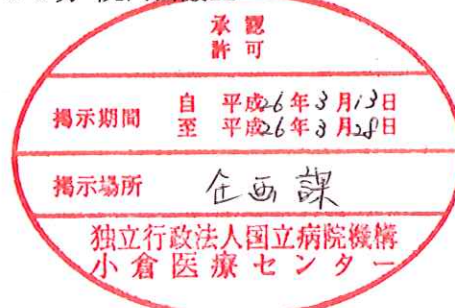 承認
許可
掲示期間
自 平成26年3月13日
至 平成26年3月28日
掲示場所 企画課
独立行政法人国立病院機構
小倉医療センター